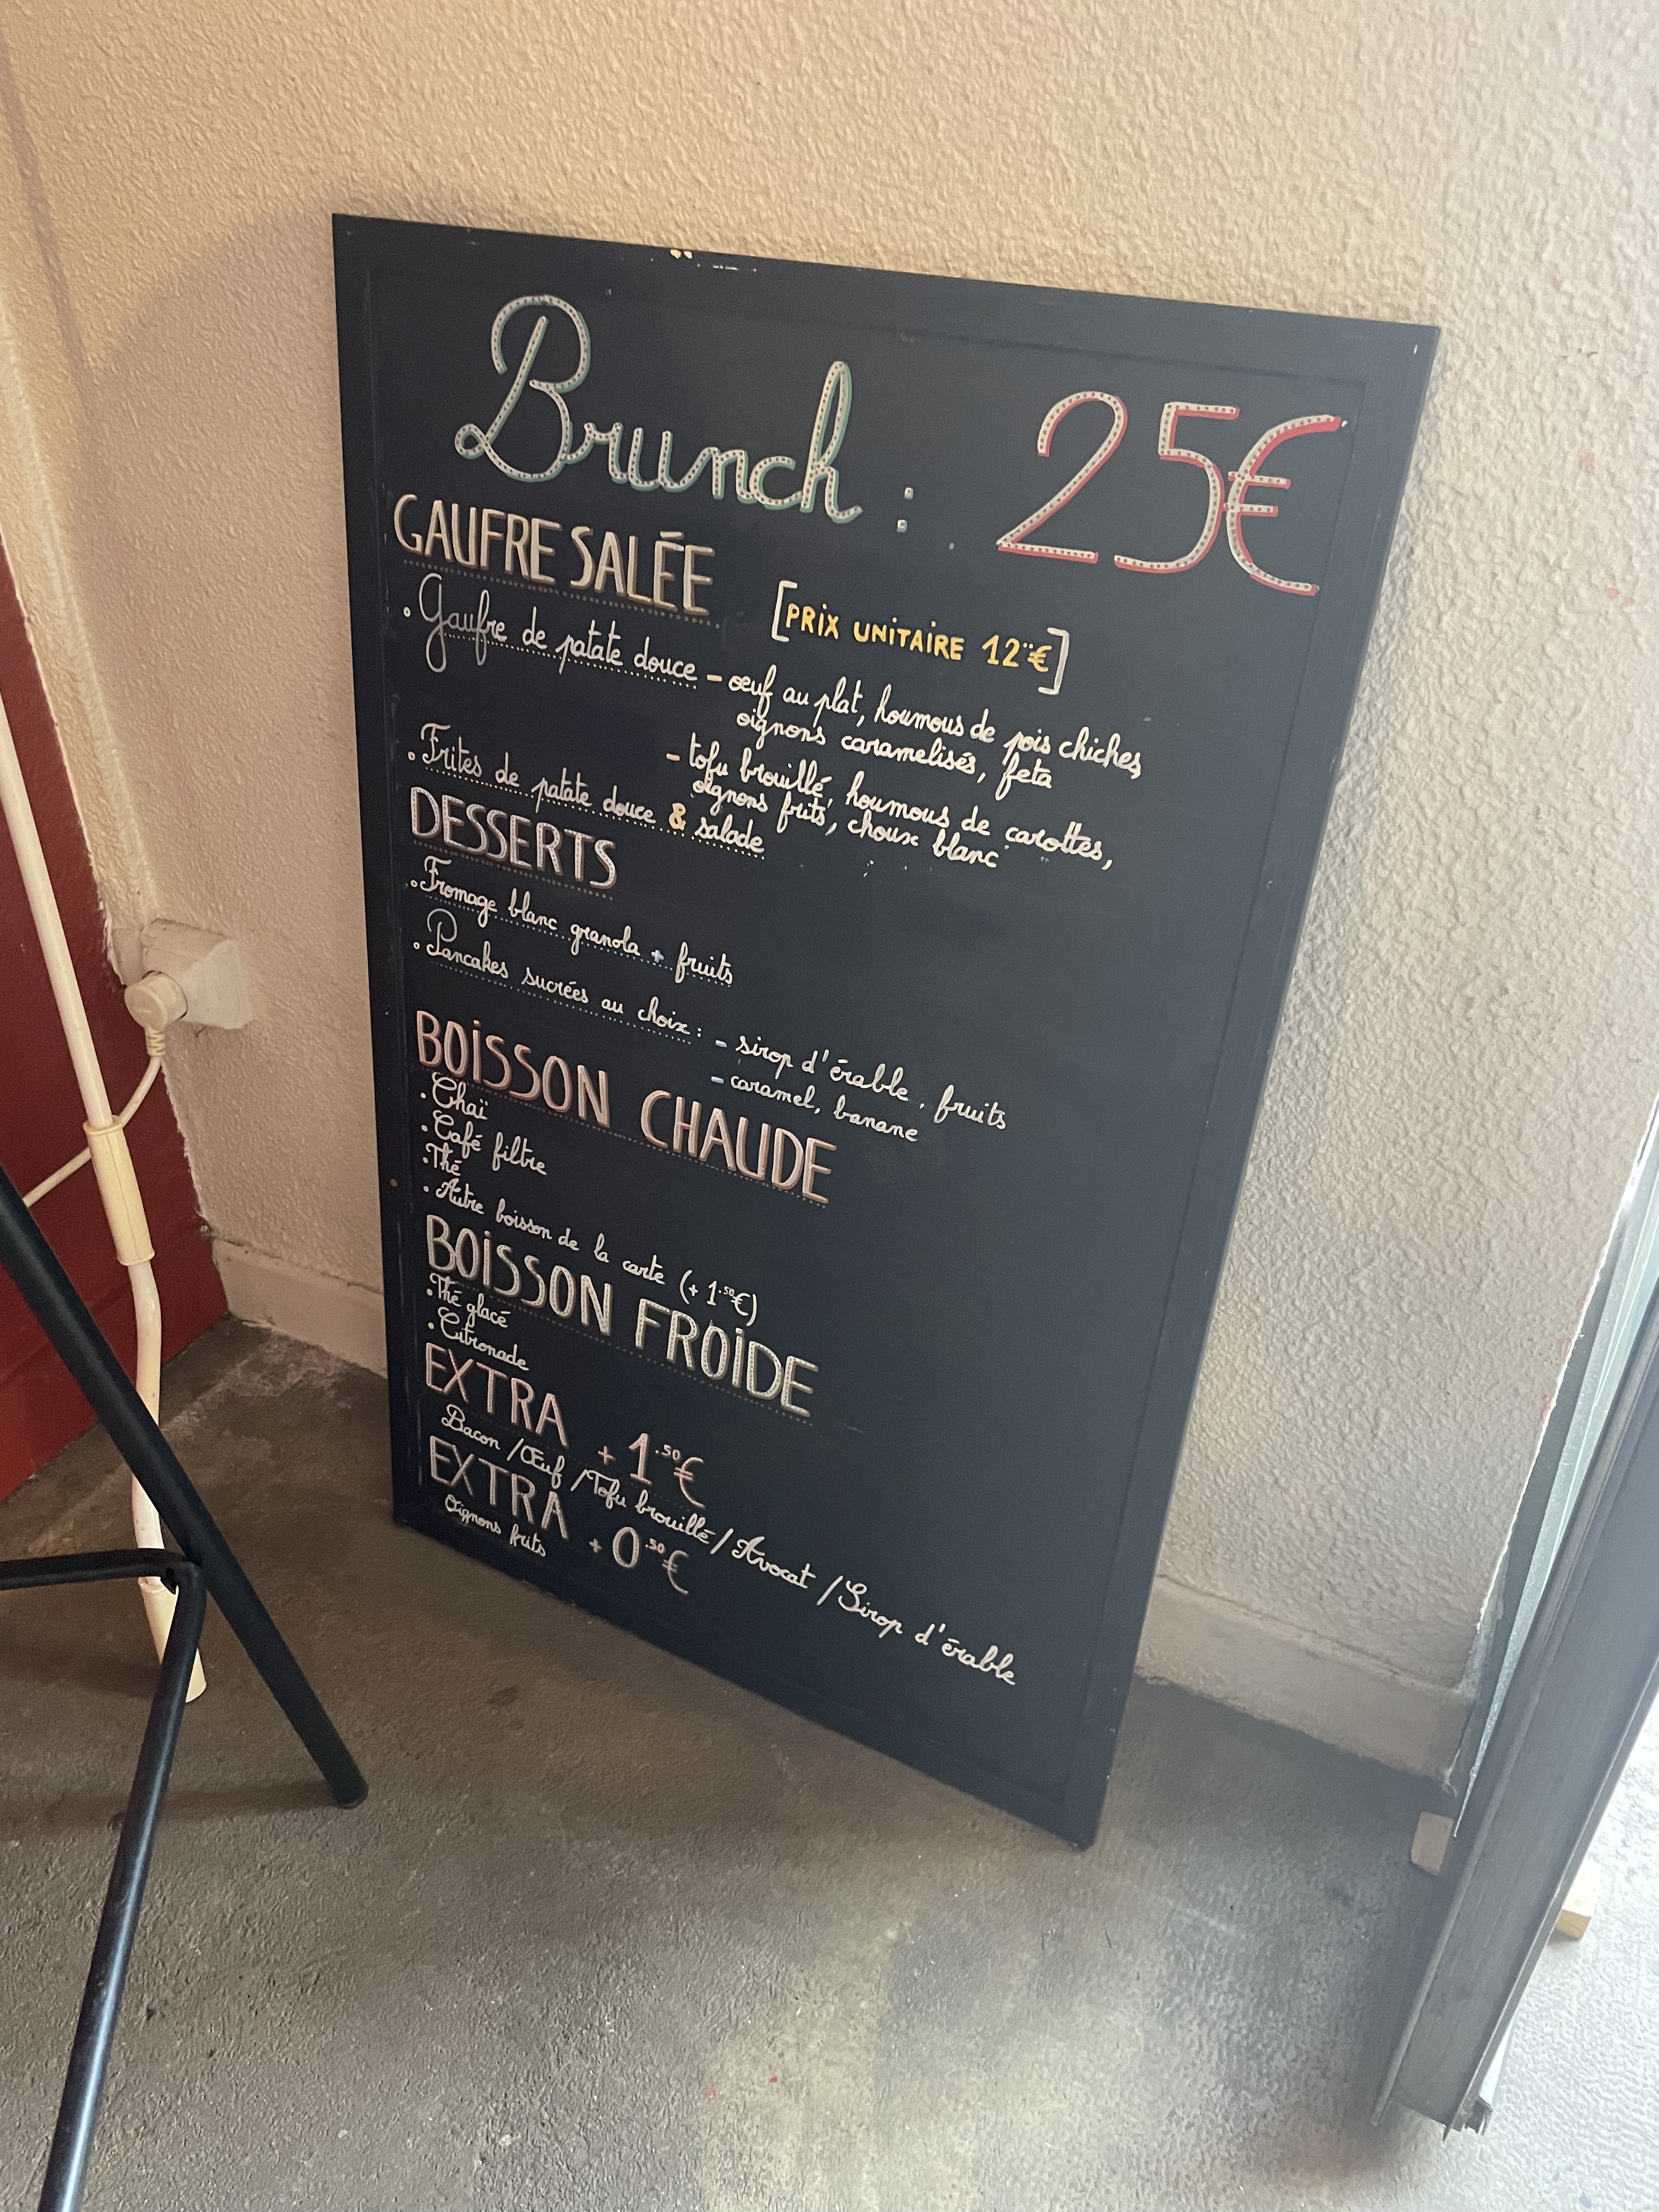 Brunch : 25€
GAUFRE SALÉE
[PRIX UNITAIRE 12€]
• Gaufre de patate douce - œuf au plat, houmous de pois chiches,
oignons caramelisés, feta
- tofu brouillé, houmous de carottes,
oignons frits, choux blanc
• Frites de patate douce & salade
DESSERTS
• Fromage blanc granola + fruits
• Pancakes sucrées au choix : - sirop d'érable, fruits
- caramel, banane
BOISSON CHAUDE
• Chaï
• Café filtre
• Thé
• Autre boisson de la carte (+ 1.50€)
BOISSON FROIDE
• Thé glacé
• Citronade
EXTRA + 1.50€
Bacon / Œuf / Tofu brouillé / Avocat / Sirop d'érable
EXTRA + 0.50€
Oignons frits